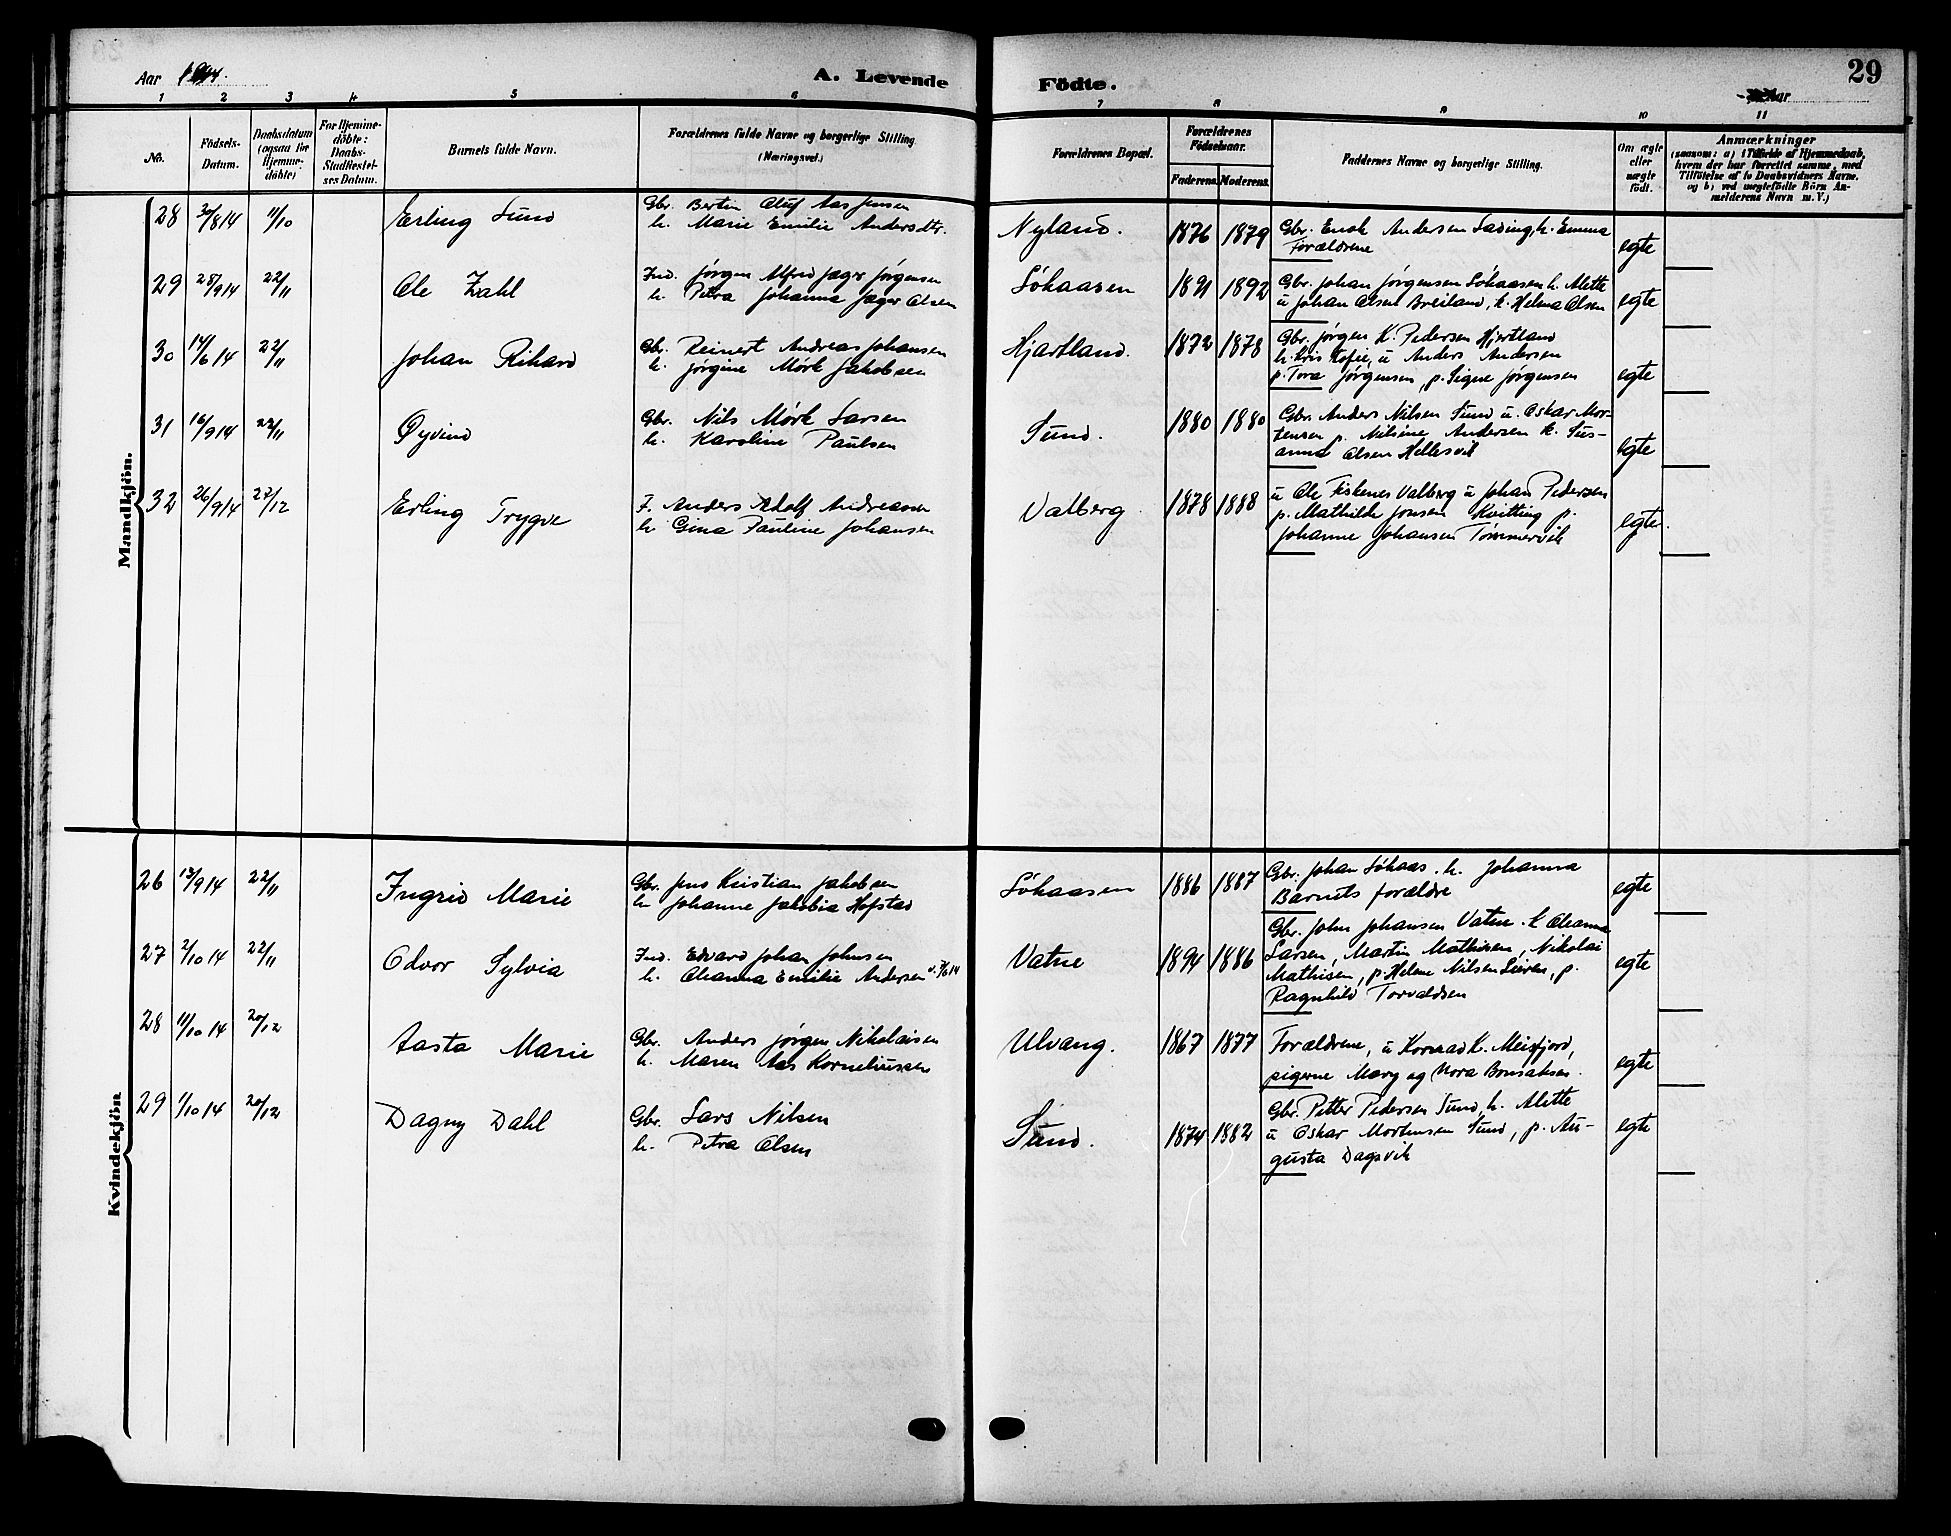 Aar 1914. A. Levende Födte. Aar 29
1 2 3 4 5 6 7 8 9 10 11
No.
Födsels-
Datum.
Daabsdatum
(ogsaa for
Hjemme-
döbte)
For Hjemme-
döbte:
Daabs-
Stadfæstel-
ses Datum.
Barnets fulde Navn.
Forældrenes fulde Navne og borgerlige Stilling
(Næringsvei.)
Forældrenes Bopæl.
Forældrenes
Födselsaar.
Faderens. Moderens.
Faddernes Navne og borgerlige Stilling.
Om ægte
eller
uægte
født.
Anmærkninger
(saasom: a) i Tilfælde af Hjemmedaab,
hvem der har forrettet samme, med
Tilföielse af to Daabsvidners Navne,
og b) ved uægtefødte Börn An-
melderens Navn m. V.)
Mandkjön.
28 30/8 14 11/10 Erling Sund
Gbr. Bertin Oluf Aas Jensen
h. Marie Emilie Andersdtr.
Nyland. 1876 1879
Gbr. Enok Andersen Lading, h. Emma
Forældrene
egte
29 28/9 14 22/11 Ole Zahl
Ind. Jørgen Alfred Jæger Jørgensen
h. Petra Johanna Jæger Olsen
Sóhaasen 1891 1892
Gbr. Johan Jørgensen Sóhaasen h. Alette
u Johan Olsen Breiland, k. Helma Olsen
egte
30 14/6 14 22/11 Johan Rikard
Gbr. Reinert Andreas Johansen
h. Jørgine Mørk Jakobsen
Hjartland. 1872 1878
Gbr. Jørgen K. Pedersen Hjertland
h. Kris Kofie, u Anders Andersen
p. Tora Jørgensen, p. Signe Jørgensen
egte
31 16/9 14 22/11 Øyvind
Gbr. Nils Mørk Larsen
h. Karoline Paulsen
Sund. 1880 1880
Gbr. Anders Nilsen Sund u. Oskar Mor-
tensen p. Nilsine Andersen k. Sus-
anna Olsen Hellesvik
egte
32 26/9 14 27/12 Erling Trygve
F. Anders Adolf Andreasen
h. Gina Pauline Johansen
Valberg. 1878 1888
u Ole Fiskenes Valberg u Johan Pedersen
p. Mathilde Jonsen Kvitting p.
Johanne Johansen Tømmervik
egte.
Kvindekjön
26 13/9 14 22/11 Ingrid Marie
Gbr. Jens Kristian Jakobsen
h Johanne Jakobia Hofstad
Sóhaasen 1886 1887
Gbr. Johan Sóhaas. h. Johanna
Barnets forældre
egte
27 2/10 14 22/11 Odvor Sylvia
Ind. Edvard Johan Johnsen
h. Oleanna Emilie Andersen
Vatne 1894 1886
Gbr. John Johansen Vatne. k Oleanna
Larsen, Martin Mathisen, Nikolai
Mathisen, p. Helene Nilsen Leiren, p.
Ragnhild Torvaldsen
egte
28 11/10 14 20/12 Aasta Marie
Gbr. Anders Jørgen Nikolaisen
h. Maren Aas Korneliussen
Ulvang. 1867 1877
Forældrene, u Konrad K. Meisfjord,
pigerne Mary og Nora Bonsaksen.
egte
29 1/10 14 20/12 Dagny Dahl
Gbr. Lars Nilsen
h. Petra Olsen
Sund. 1874 1882
Gbr. Petter Pedersen Sund, h. Alette
u Oskar Mortensen Sund, p. Au-
gusta Dagsvik
egte